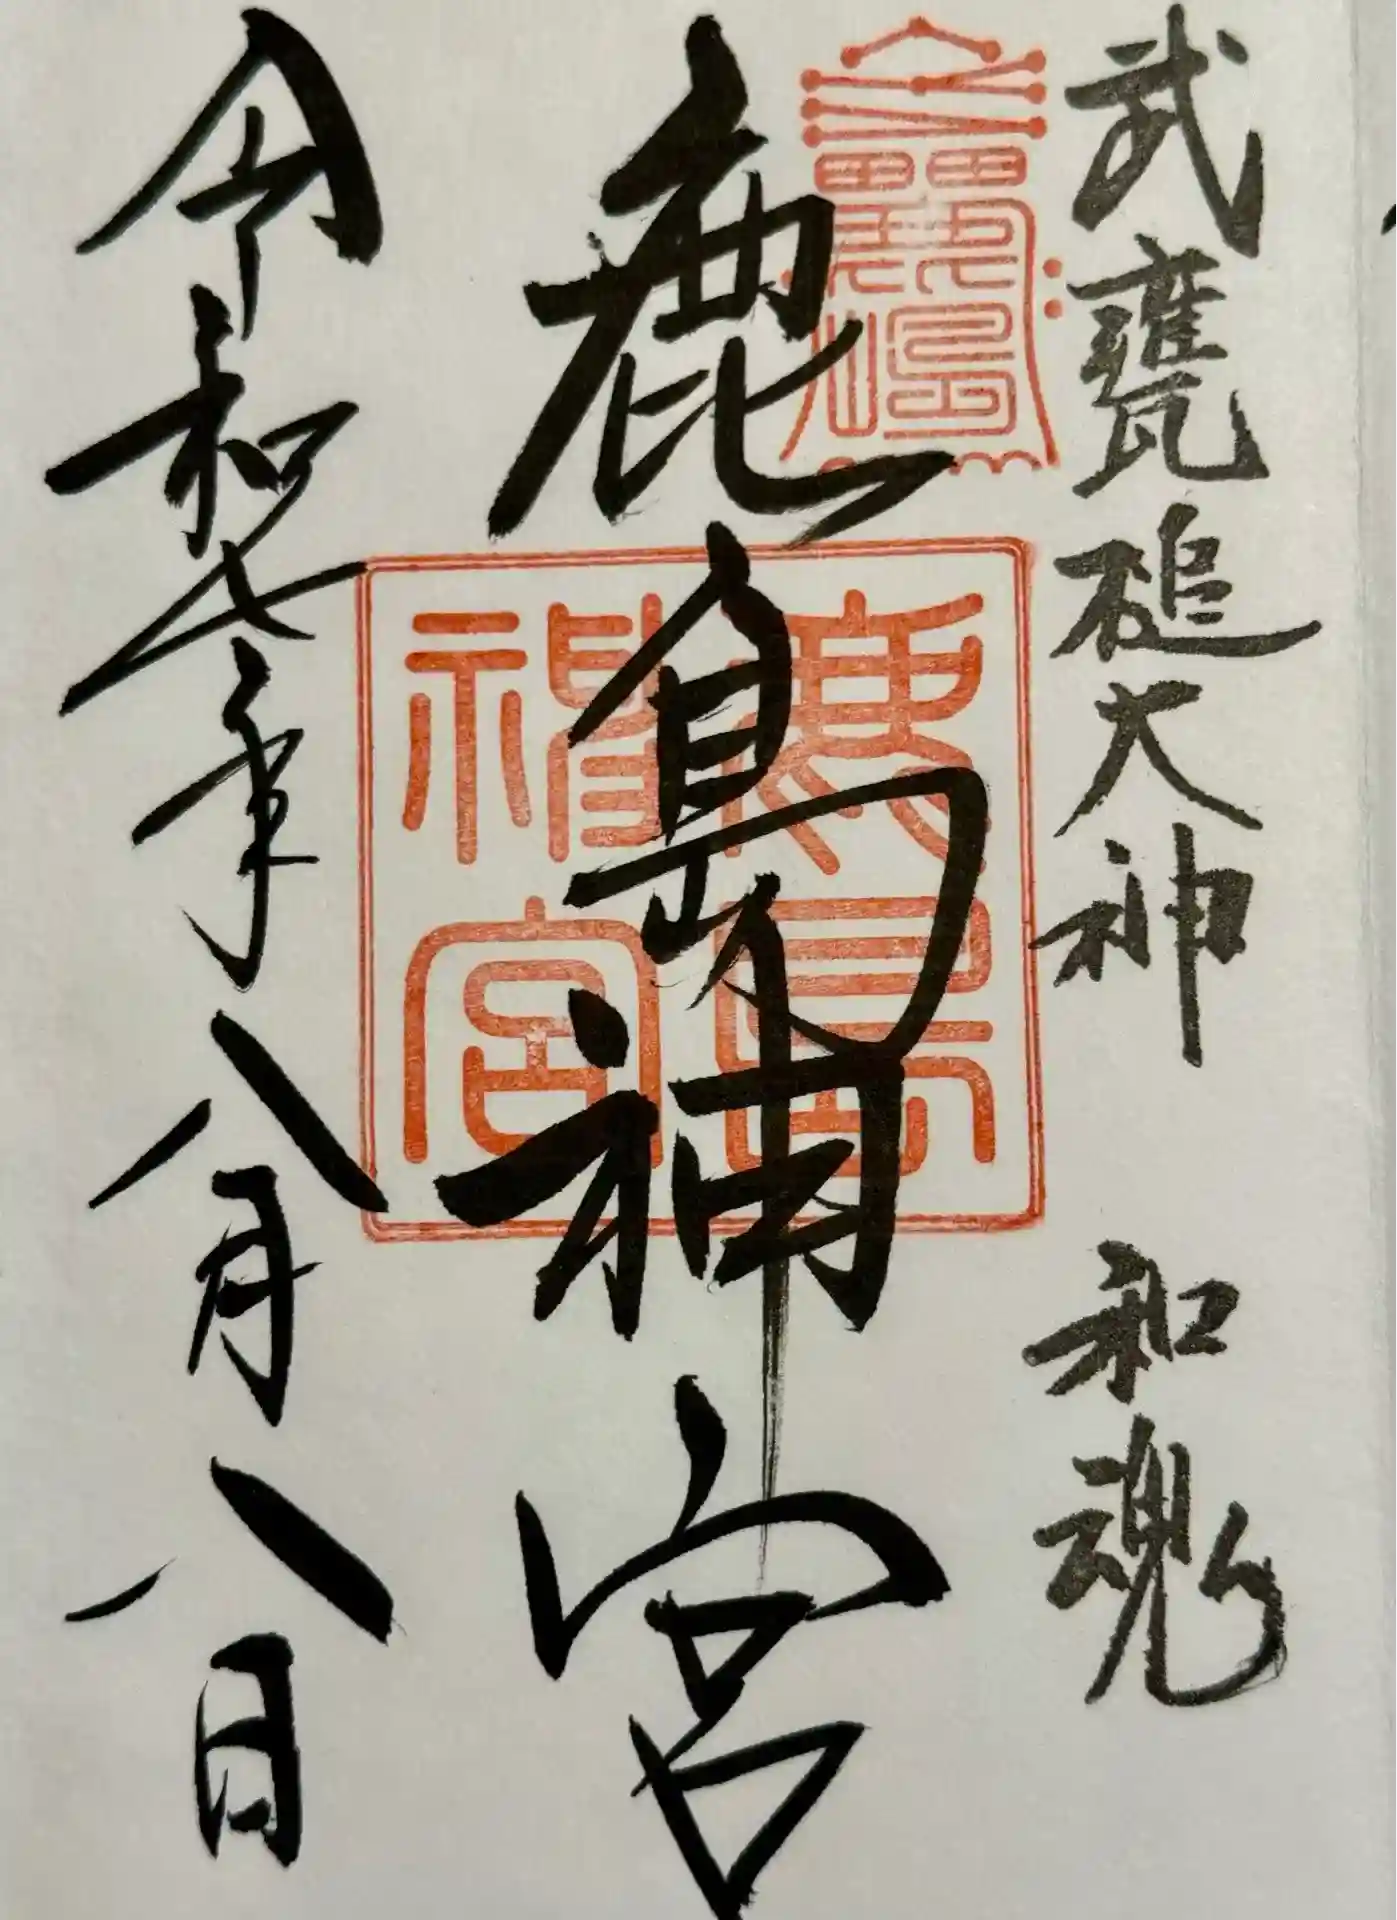 武甕槌大神　和魂
鹿島神宮
鹿島神宮
令和七年八月八日